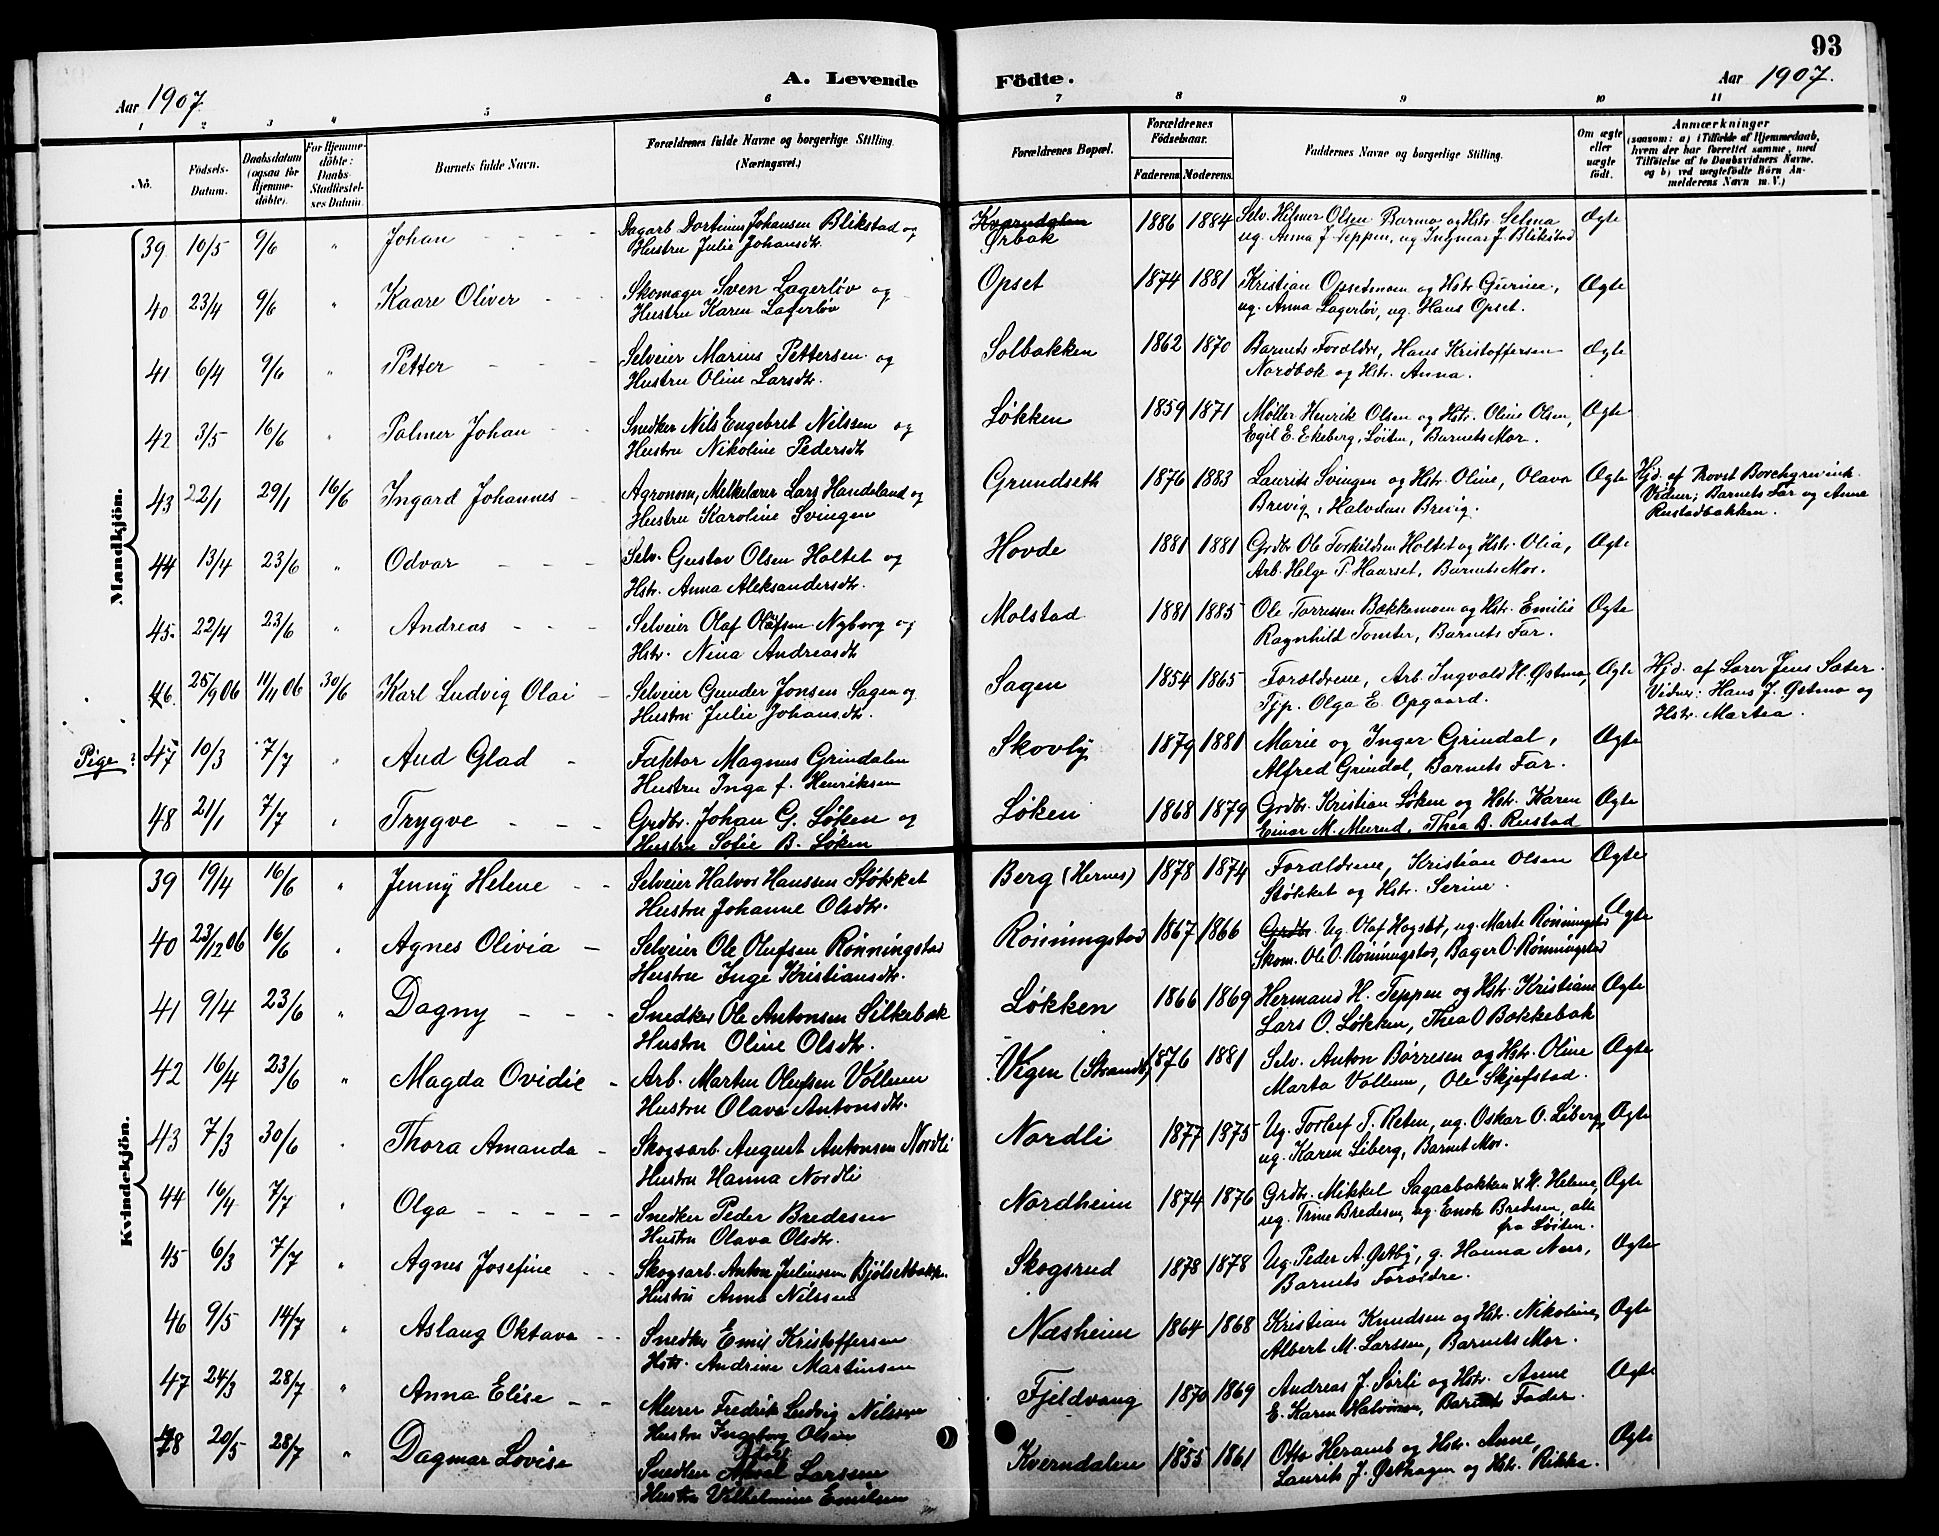 93
A. Levende Födte.
Aar 1907.
Aar 1907.
1 2 3 4 5 6 7 8 9 10 11
No.
Födsels-Datum.
Daabsdatum (ogsaa for Hjemmedöbte).
For Hjemmedöbte: Daabs-Stadfæstelses Datum.
Barnets fulde Navn.
Forældrenes fulde Navne og borgerlige Stilling. (Næringsvei.)
Forældrenes Bopæl.
Forældrenes Födselsaar.
Faderens Moderens.
Faddernes Navne og borgerlige Stilling.
Om ægte eller uægte født.
Anmærkninger
(saasom: a) i Tilfælde af Hjemmedaab, hvem der har forrettet samme, med Tilföielse af to Daabsvidners Navne. og b) ved uægtefödte Börn Anmelderens Navn m. V.)
Mandkjön.
39 10/5 9/6 " Johan Dagarb Dortinius Johansen Blikstad og Kværndalen 1886 1884 Selv. Hilmer Olsen Barmo og Hstr. Selma Ægte
Hustru Julie Johansdtr. Ørbak ug. Anna J. Teppen, ug Ingmar J. Blikstad
40 23/4 9/6 " Kaare Oliver Skomager Sven Lagerløv og Opset 1874 1881 Kristian Opsetmoen og Hstr Gurine, Ægte
Hustru Karen Lagerløv ug. Anna Lagerløv, ug. Hans Opset.
41 6/4 9/6 " Petter Selveier Marius Pettersen og Solbakken 1862 1870 Barnets Forældre, Hans Kristoffersen Ægte
Hustru Oline Larsdtr. Nordbæk og Hstr. Anna.
42 3/5 16/6 " Palmer Johan Snedker Nils Engebret Nilssen og Løkken 1859 1871 Møller Henrik Olsen og Hstr. Oline Olsen, Ægte
Hustru Nikoline Pedersdtr Egil E. Ekeberg, Løiten, Barnets Mor.
43 22/1 29/1 16/6 Ingard Johannes Agronom, Melkelærer Lars Handeland og Grundseth 1876 1883 Laurits Svingen og Hstr. Oline, Olava Ægte Hjd. af Provst Borchgrevink.
Hustru Karoline Svingen Brevig, Halvdan Brevig. Vidner; Barnets Far og Anne
Rustadbakken.
44 13/4 23/6 " Odvar Selv. Gustav Olsen Holtet og Hovde 1881 1881 Grdbr Ole Torkildsen Holtet og Hstr. Olia, Ægte
Hstr. Anna Aleksandersdtr. Arb. Helge P. Haarset, Barnets Mor.
45. 22/4 23/6 " Andreas Selveier Olaf Olafsen Nyborg og Molstad 1881 1885 Ole Torressen Bækkemoen og Hstr. Emilie Ægte
Hstr. Nina Andreasdtr Ragnhild Tomter, Barnets Far.
46 25/9 06 11/11 06 30/6 Karl Ludvig Olai Selveier Gunder Jonsen Sagen og Sagen 1854 1865 Forældrene, Arb. Ingvald H. Østmo, Ægte Hjd. af Lærer Jens Sæter.
Hustru Julie Johansdtr. Tjp. Olga E. Opgaard. Vidner: Hans J. Østmo og
Hstr. Martea.
Pige? 47 10/3 7/7 " Aud Glad Faktor Magnus Grindalen Skovly 1879 1881 Marie og Inger Grindal, Ægte
Hustru Inga f. Henriksen Alfred Grindal, Barnets Far.
48 21/1 7/7 " Trygve Grdbr. Johan G. Løken og Løken 1868 1879 Grdbr. Kristian Løken og Hstr. Karen Ægte
Hustru Sofie B. Løken Einar M. Murud, Thea B. Rustad
Kvindekjön.
39 19/4 16/6 " Jenny Helene Selveier Halvor Hanssen Støkket Berg (Hernes) 1878 1874 Forældrene, Kristian Olsen Ægte
Hustru Johanne Olsdtr. Støkket og Hstr. Serine.
40 23/12 06 16/6 " Agnes Olivia Selveier Ole Olufsen Rønningstad Rønningstad 1867 1866 Grdbr. Ug. Olaf Hogstøt, ug. Marte Rønningstad Ægte
Hustru Inge Kristiansdtr. Skom. Ole O. Rønningstad, Bager O. Rønningstad
41 9/4 23/6 " Dagny Snedker Ole Antonsen Silkebæk Løkken 1866 1869 Hermand H. Teppen og Hstr. Kristiane Ægte
Hustru Oline Olsdtr. Lars O. Løkken, Thea O Bækkebak
42 16/4 23/6 " Magda Ovidie Arb. Martin Olufsen Vollum Vigen (Strandb.) 1876 1881 Selv. Anton Børresen og Hstr. Oline Ægte
Hustru Olava Antonsdtr. Marta Vollum, Ole Skjefstad.
43 7/3 30/6 " Thora Amanda Skogsarb. August Antonsen Nordli Nordli 1877 1875 Ug. Torleif T. Reten, ug. Oskar O. Liberg, Ægte
Hustru Hanna Nordli ug. Karen Liberg, Barnet Mor.
44 16/4 7/7 " Olga Snedker Peder Bredesen Nordheim 1874 1876 Grdbr. Mikkel Sagaabakken & H. Helene, Ægte
Hustru Olava Olsdtr. ug. Trine Bredesen, ug. Enok Bredesen, alle
fra Løiten.
45 6/3 7/7 " Agnes Josefine Skogsarb. Anton Juliussen Bjølsetbakk. Skogsrud 1878 1878 Ug. Peder A. Østby, g. Hanna Næss, Ægte
Hustru Anna Nilssen Barnets Forældre.
46 9/5 14/7 " Aslaug Oktava Snedker Emil Kristoffersen Næsheim 1864 1868 Kristian Knudsen og Hstr. Nikoline, Ægte
Hstr. Andrine Martinsen Albert M. Larssen, Barnets Mor.
47 24/3 28/7 " Anna Elise Murer Fredrik Ludvig Nilssen Fjeldvang 1870 1869 Andreas J. Sørli og Hstr. Anne Ægte
Hustru Ingeborg Olsen E. Karen Halvorsen, Barnets Fader.
48 20/5 28/7 " Dagmar Lovise Snedker Larssen Kverndalen 1855 1861 Otto Heramb og Hstr. Anne, Ægte
Hustru Vilhelmine Emilsen Laurits J. Østhagen og Hstr. Rikka.